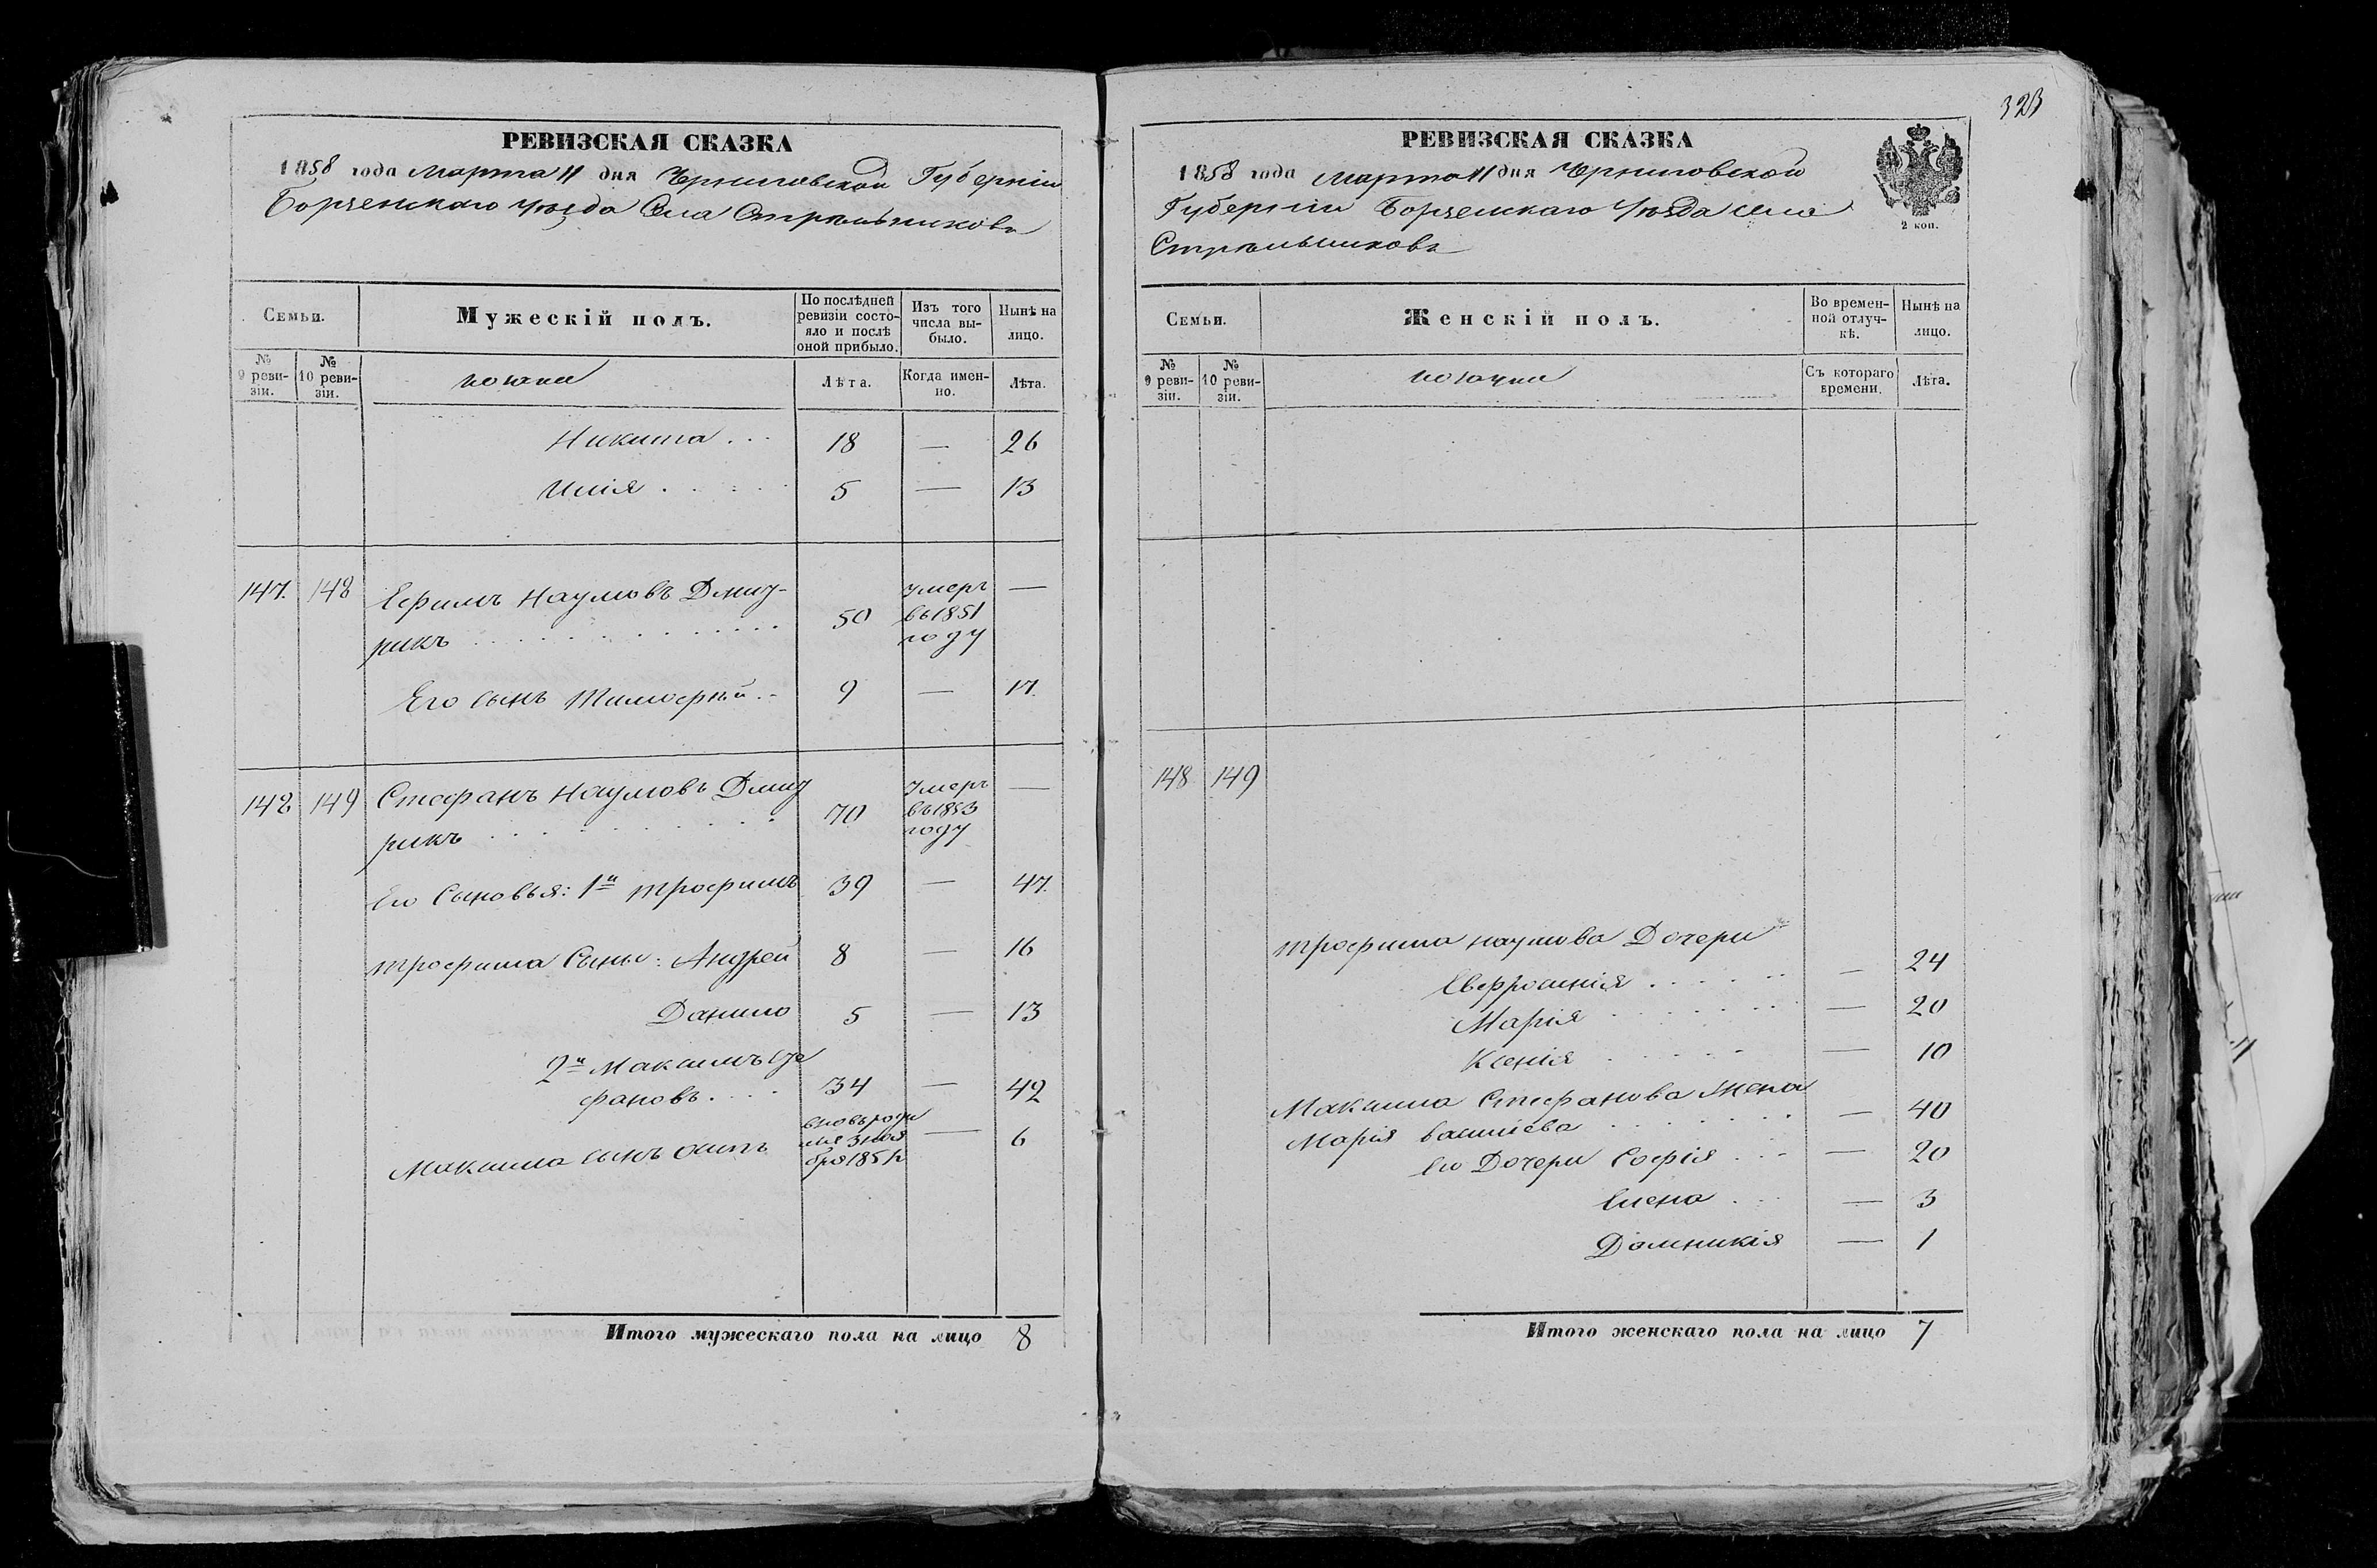 РЕВИЗСКАЯ СКАЗКА
1858 года Марта 11 дня Черниговской Губерніи
Борзенскаго Уѣзда Села Стрѣльниковъ
Семьи.
Мужескій полъ.
По послѣдней ревизіи состояло и послѣ оной прибыло.
Изъ того числа выбыло.
Нынѣ на лицо.
№ 9 ревизіи.
№ 10 ревизіи.
козаки
Лѣта.
Когда именно.
Лѣта.
Никита . . . 18 — 26
Илія . . . . . 5 — 13
147. 148 Ефимъ Наумовъ Дмит-
рикъ . . . . 50 умеръ въ 1851 году —
Его сынъ Тимофѣй . . 9 — 17.
148 149 Стефанъ Наумовъ Дмит
рикъ . . . . 70 умеръ въ 1853 году —
Его Сыновья: 1й Трофимъ 39 — 47.
Трофима Сыны: Андрей 8 — 16
Данило 5 — 13
2й Максимъ Сте
фановъ . . . . 34 — 42
Максима сынъ Осипъ вновь роди — 6
Итого мужескаго пола на лицо 8
323
РЕВИЗСКАЯ СКАЗКА
1858 года Марта 11 дня Черниговской
Губерніи Борзенскаго Уѣзда села
Стрѣльниковъ
2 коп.
Семьи.
Женскій полъ.
Во временной отлучкѣ.
Нынѣ на лицо.
№ 9 ревизіи.
№ 10 ревизіи.
козачки
Съ котораго времени.
Лѣта.
148 149
Трофима Наумова Дочери
Евфросинія . . . . . — 24
Марія . . . . . . — 20
Ксенія . . . . . — 10
Максима Стефанова Жена
Марія . . . . . — 40
Его Дочери Софія . . . — 20
Елена . . . — 3
Домникія — 1
Итого женскаго пола на лицо 7